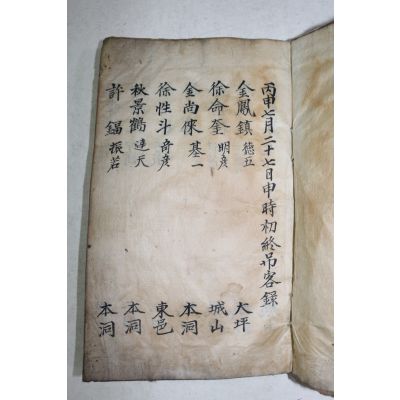 丙申七月二十七日申時初終吊客錄
金鳳鎮 德五 大坪
徐命奎 明彦 城山
金尚倈 基一 本洞
徐性斗 奇彦 東邑
秋景鶴 達天 本洞
許鎦 振若 本洞